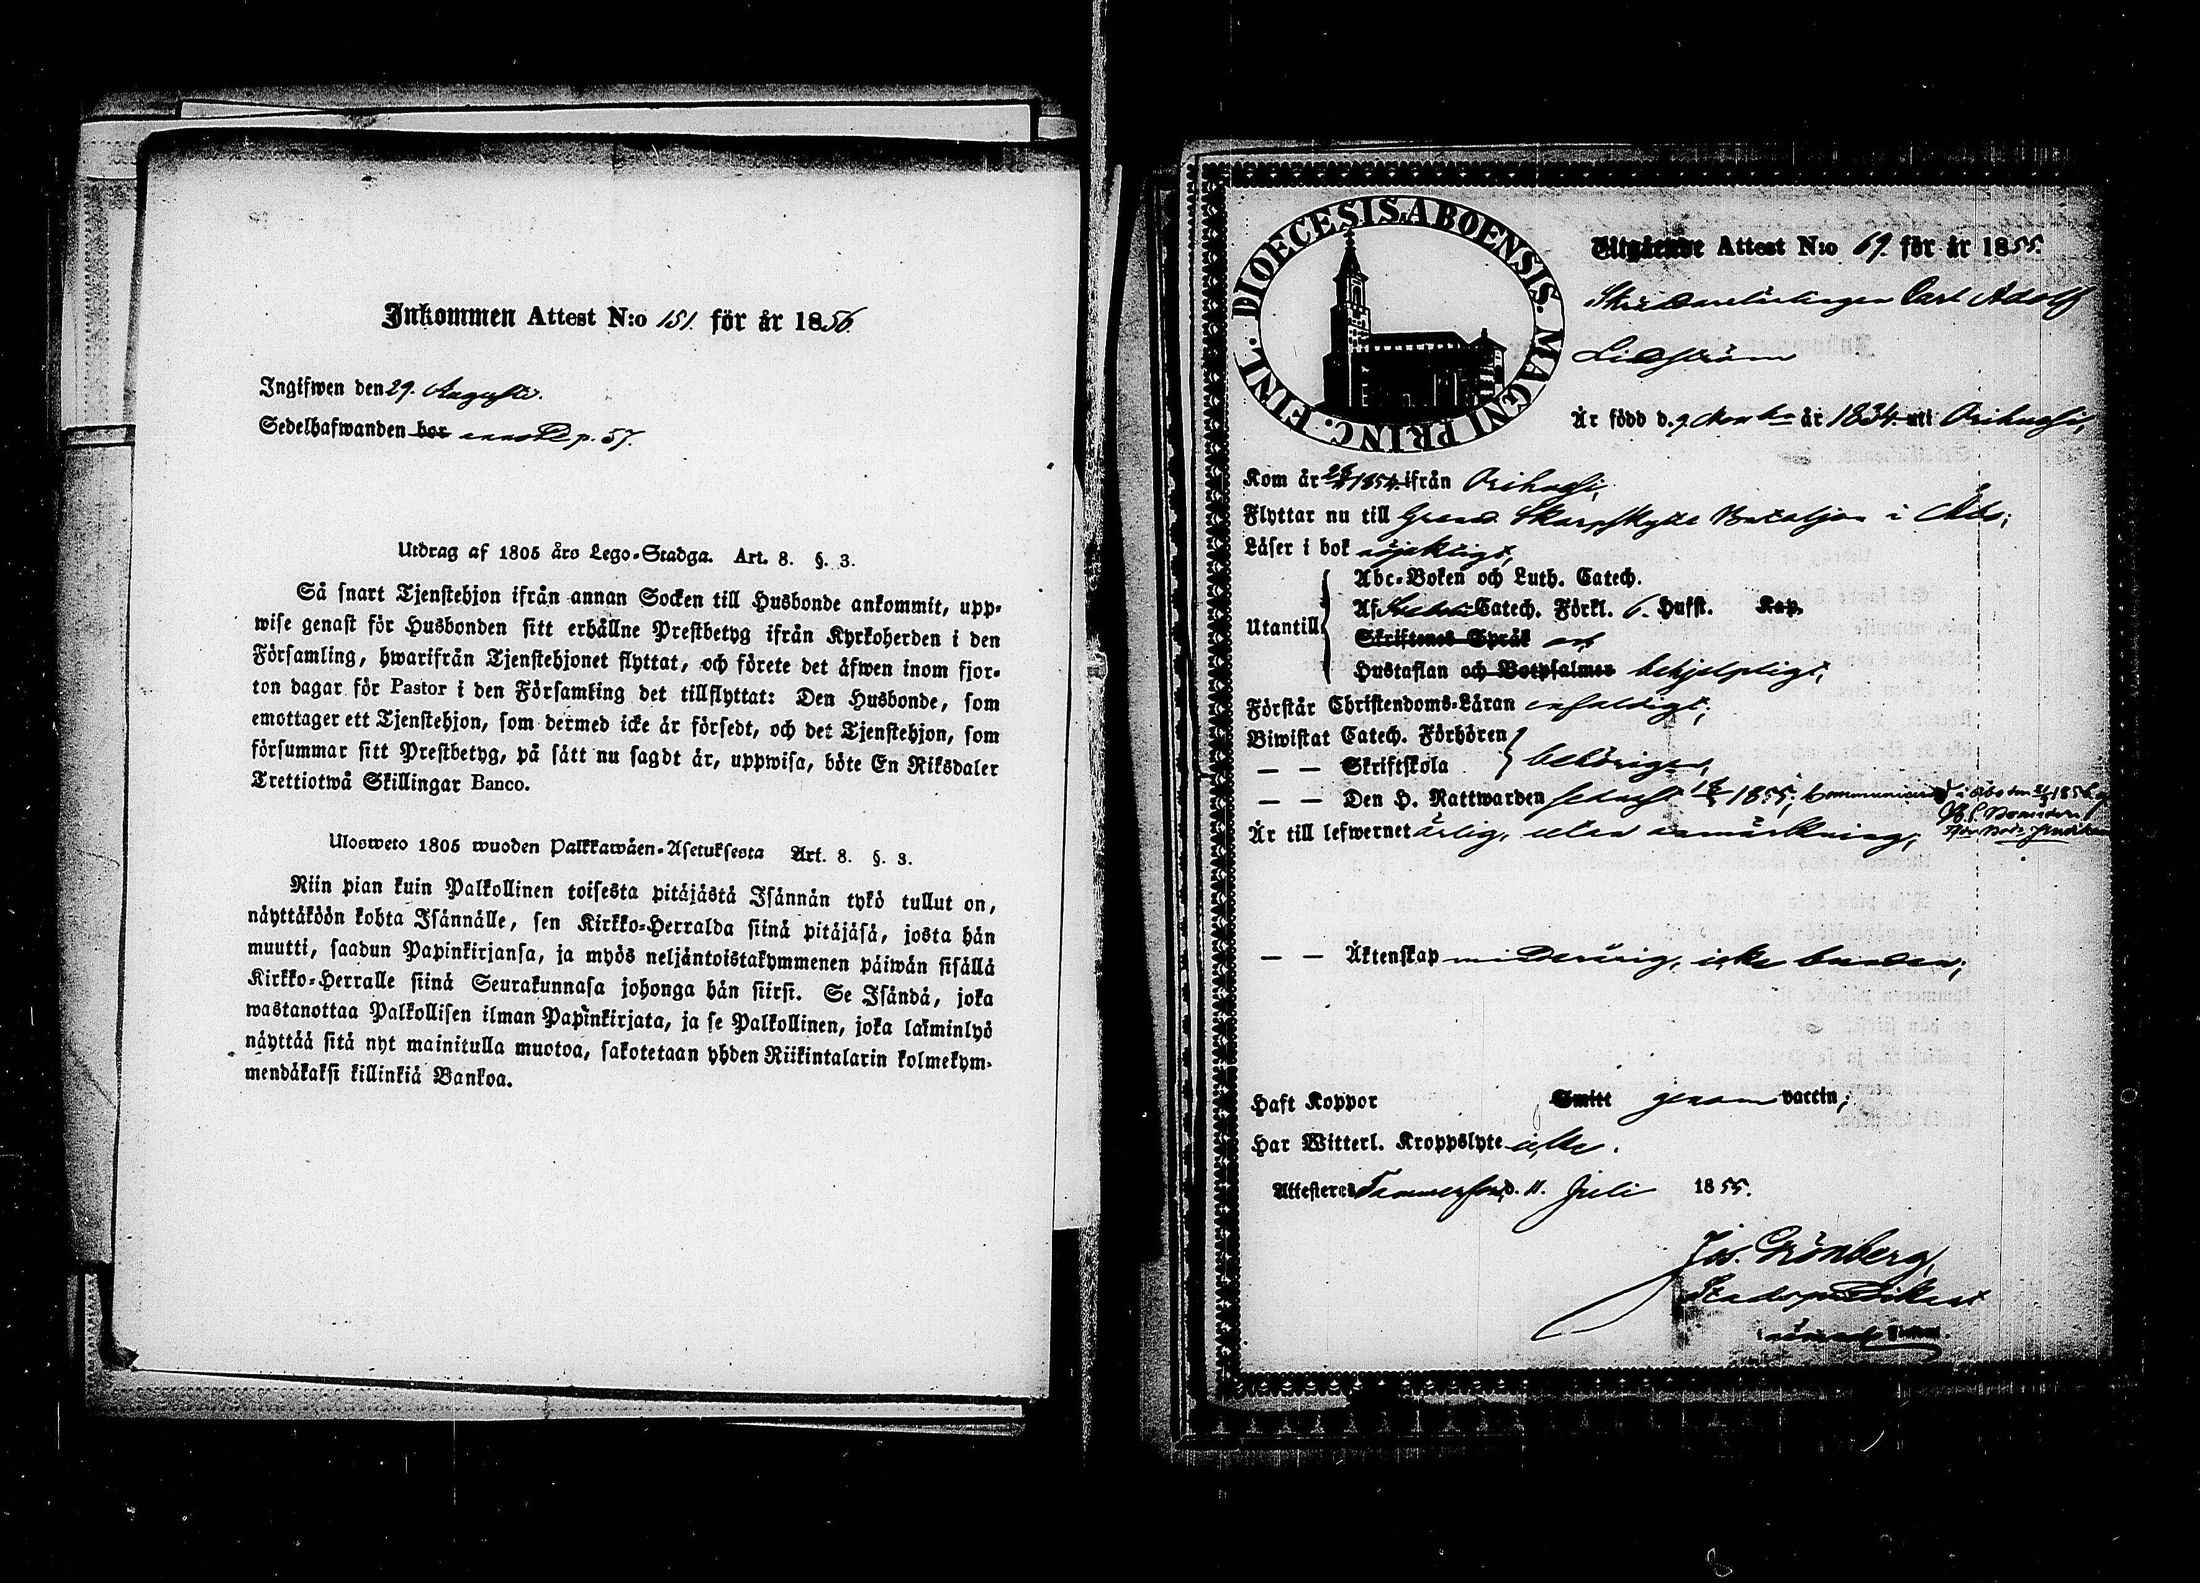 Inkommen Attest N:o 151. för år 1856
Ingifwen den 29. Augusti.
Sedelhafwanden bor annoterad p. 57.
Utdrag af 1805 års Lego-Stadga. Art. 8. §. 3.
Så snart Tjenstehjon ifrån annan Socken till Husbonde ankommit, upp-
wise genast för Husbonden sitt erhållne Prestbetyg ifrån Kyrkoherden i den
Församling, hwarifrån Tjenstehjonet flyttat, och förete det äfwen inom fjor-
ton dagar för Pastor i den Församling det tillflyttat: Den Husbonde, som
emottager ett Tjenstehjon, som dermed icke är försedt, och det Tjenstehjon, som
försummar sitt Prestbetyg, på sätt nu sagdt är, uppwisa, böte En Riksdaler
Trettiotwå Skillingar Banco.
Ulosweto 1805 wuoden Palkkawäen-Asetuksesta Art. 8. §. 3.
Niin pian kuin Palkollinen toisesta pitäjästä Isännän tykö tullut on,
näyttäköön kohta Isännälle, sen Kirkko-Herralda siinä pitäjäsä, josta hän
muutti, saadun Papinkirjansa, ja myös neljäntoistakymmenen päiwän sisällä
Kirkko-Herralle siinä Seurakunnasa johonga hän siirsi. Se Isändä, joka
wastanottaa Palkollisen ilman Papinkirjata, ja se Palkollinen, joka laiminlyö
näyttää sitä nyt mainitulla muotoa, sakotetaan yhden Riikintalarin kolmekym-
mendäkaksi killinkiä Bankoa.
DIOECESIS ABOENSIS. MAGNI PRINC. FINL.
Utgående Attest N:o 69. för år 1855.
Skräddarelärlingen Carl Adolf
Lidström
Är född d. 9 Novbr år 1834 uti Orihvesi,
Kom år 1854 ifrån Orihvesi,
Flyttar nu till Gren. Skarpskytte Bataljon i Åbo;
Läser i bok nöjaktigt,
Utantill
Abc-Boken och Luth. Catech.
Af Catech. Förkl. 6. Hufst. Kap.
Skriftenes Språk och
Hustaflan och Botpsalmer behjelpligt,
Förstår Christendoms-Läran enfaldigt;
Biwistat Catech. Förhören
— — Skriftskola behörigen,
— — Den H. Nattwarden sednast 1855; Communicerat i Åbo den 1856
Är till lefwernet ärlig, utan anmärkning;
— — Äktenskap minderårig, icke bunden;
Haft Koppor Smitt genom vaccin;
Har Witterl. Kroppslyte icke.
Attesteras Tammerfors d. 11. Juli 1855.
Jos. Grönberg,
Stadspredikant